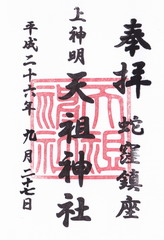 奉拝
蛇窪鎮座
上神明
天祖神社
平成二十六年九月二十七日